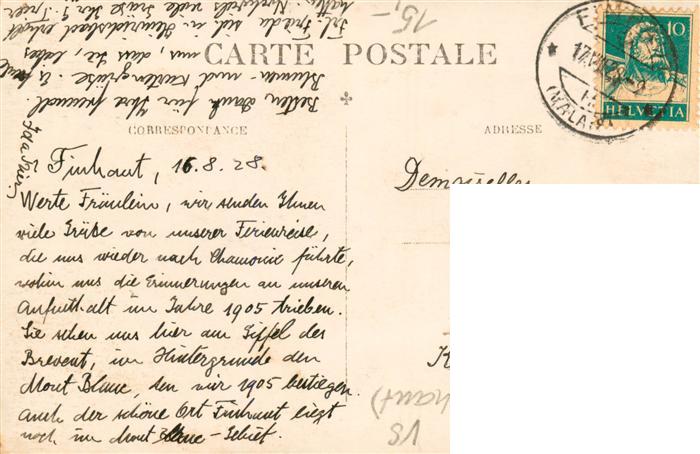 CARTE POSTALE
CORRESPONDANCE
ADRESSE
Finhaut, 16.8.28.
Werte Fräulein, wir senden Ihnen
viele Grüße von unserer Ferienreise,
die uns wieder nach Chamonix führte,
wohin uns die Erinnerungen an unseren
Aufenthalt im Jahre 1905 trieben.
Sie sehen uns hier am Gipfel des
Brevent, im Hintergrunde den
Mont Blanc, den wir 1905 bestiegen.
Auch der schöne Ort Finhaut liegt
noch im Mont Blanc-Gebiet.
Besten Dank für Ihre freundl.
Blumen- und Kartengrüße. Es
uns, dass Sie, liebes
Frl. Frieda sich in
viele Grüße Ihr
Demoiselles
10
HELVETIA
15,-
VS